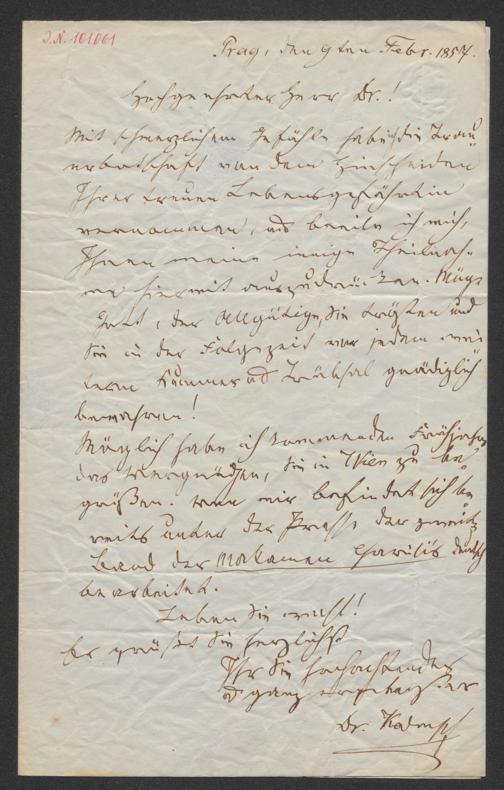 I.N. 101.061
Prag, den 9ten Febr. 1857.
Hochgeehrter Herr Dr.!
Mit schmerzlichem Gefühle habe ich die Trau-
erbotschaft von dem Hinscheiden
Ihrer treuen Lebensgefährtin
vernommen, und beeile ich mich,
Ihnen meine innige Theilnah-
me hiermit auszudrücken. Möge
Gott, der Allgütige, Sie trösten und
Sie in der Folgezeit vor jedem wei-
tern Kummer und Trübsal gnädiglich
bewahren!
Möglich habe ich kommenden Frühjahr
das Vergnügen, Sie in Wien zu be-
grüßen. Von mir befindet sich be-
reits unter der Presse der zweite
Band der Makamen Charisis deutsch
bearbeitet.
Leben Sie wohl!
Es grüßt Sie herzlichst
Ihr Sie hochachtender
und ganz ergebenster
Dr. Kämpf